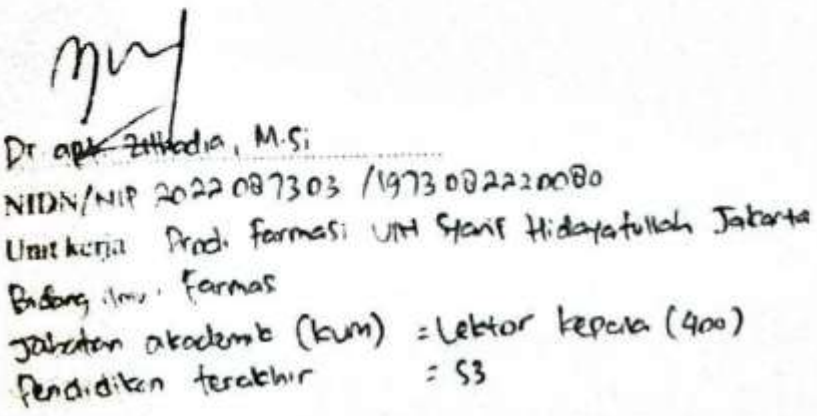 Dr apt. Zilhadia, M.Si
NIDN/NIP 2022087303 /19730822220080
Unit kerja Prodi Farmasi UIN Syarif Hidayatullah Jakarta
Bidang ilmu. Farmas
Jabatan akademik (kum) = Lektor kepala (400)
Pendidikan terakhir = S3